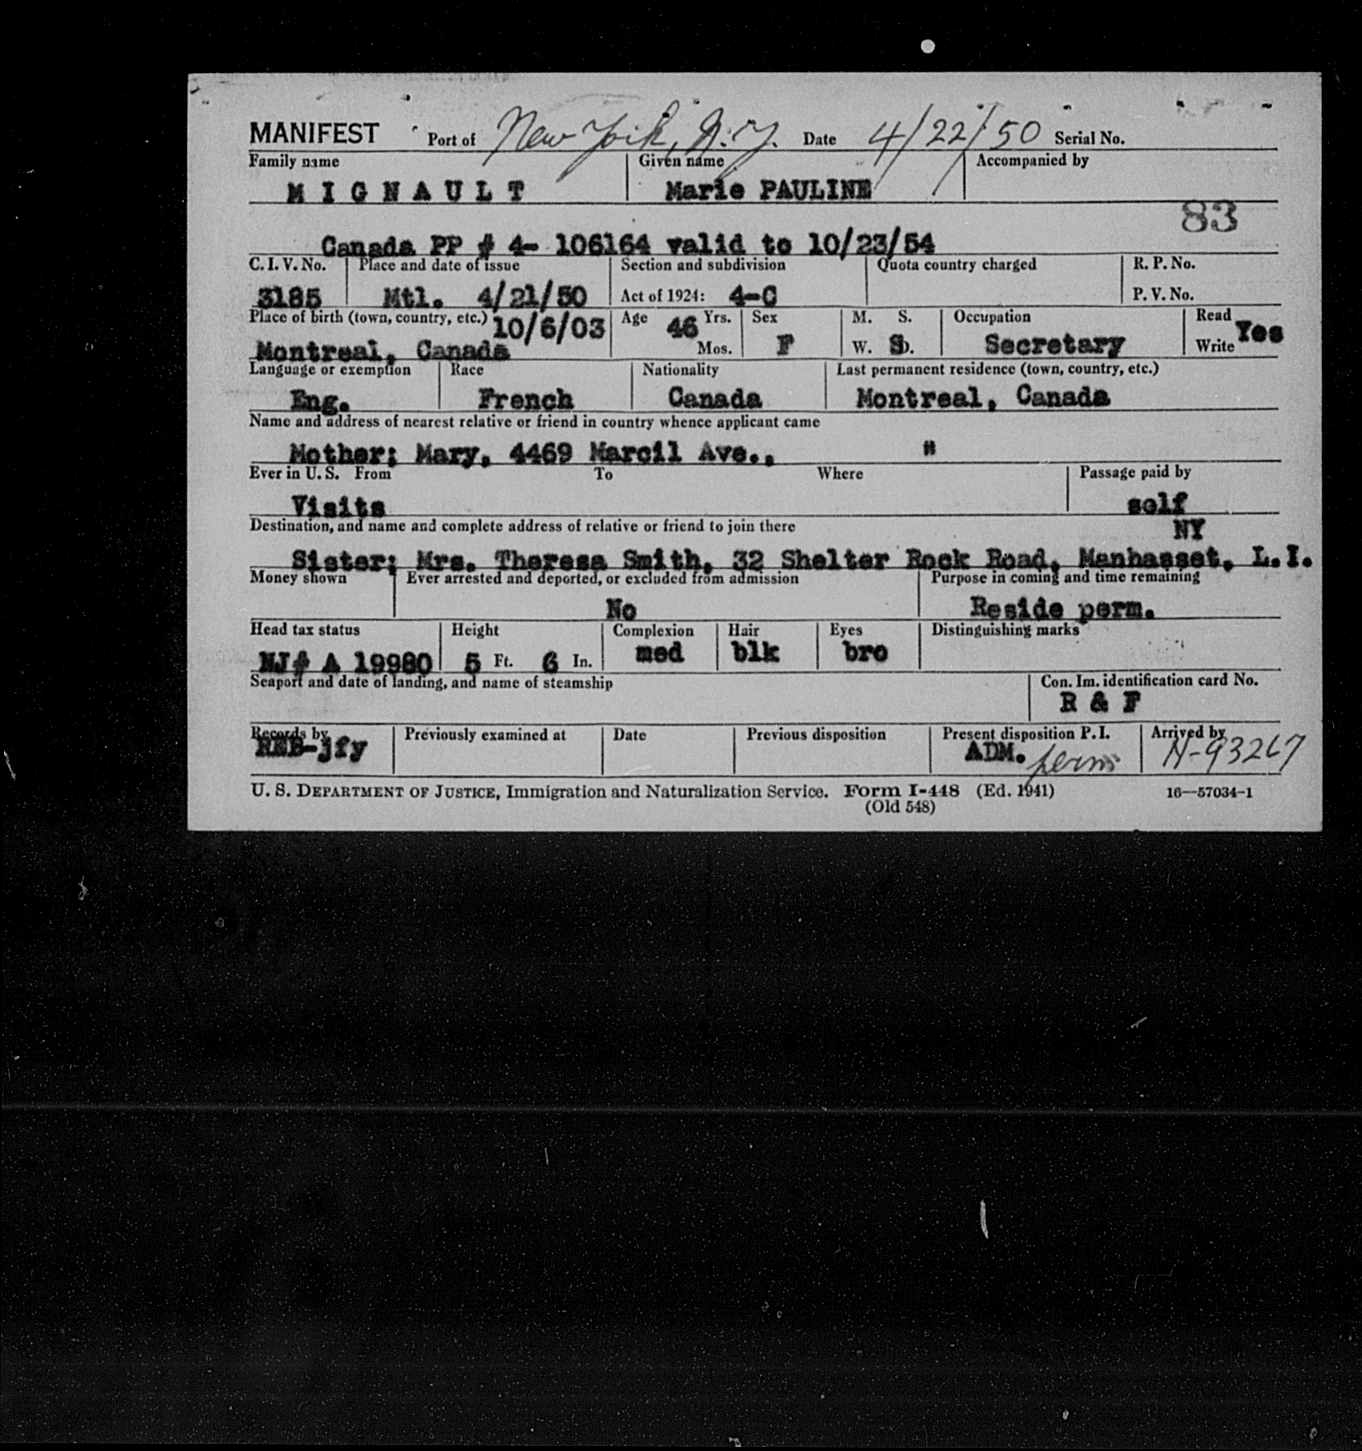 MANIFEST Port of New York, N.Y. Date 4/22/50 Serial No.
Family name Given name Accompanied by
MIGNAULT Marie PAULINE
83
Canada PP # 4- 106164 valid to 10/23/54
C. I. V. No. Place and date of issue Section and subdivision Quota country charged R. P. No.
3185 Mtl. 4/21/50 Act of 1924: 4-C P. V. No.
Place of birth (town, country, etc.) 10/6/03 Age 46 Yrs. Sex M. S. Occupation Read Yes
Montreal, Canada Mos. F W. D. Secretary Write
Language or exemption Race Nationality Last permanent residence (town, country, etc.)
Eng. French Canada Montreal, Canada
Name and address of nearest relative or friend in country whence applicant came
Mother; Mary, 4469 Marcil Ave., "
Ever in U. S. From To Where Passage paid by
Visits self
Destination, and name and complete address of relative or friend to join there NY
Sister; Mrs. Theresa Smith, 32 Shelter Rock Road, Manhasset, L.I.
Money shown Ever arrested and deported, or excluded from admission Purpose in coming and time remaining
No Reside perm.
Head tax status Height Complexion Hair Eyes Distinguishing marks
NJ# A 19980 5 Ft. 6 In. med blk bro
Seaport and date of landing, and name of steamship Con. Im. identification card No.
R & F
Records by Previously examined at Date Previous disposition Present disposition P. I. Arrived by
-jfy ADM. perm N-93267
U. S. DEPARTMENT OF JUSTICE, Immigration and Naturalization Service. Form I-448 (Ed. 1941) 16—57034-1
(Old 548)